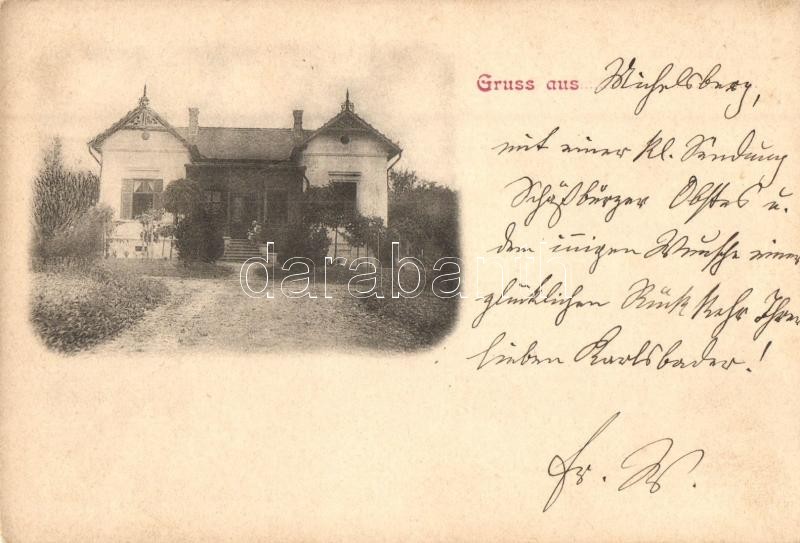 Gruss aus Michelsberg,
mit einer kl. Sendung
Schäßburger Obstes u.
dem innigen Wunsche einer
glücklichen Rückkehr Ihrer
lieben Karlsbader!
Fr. W.
darabanth